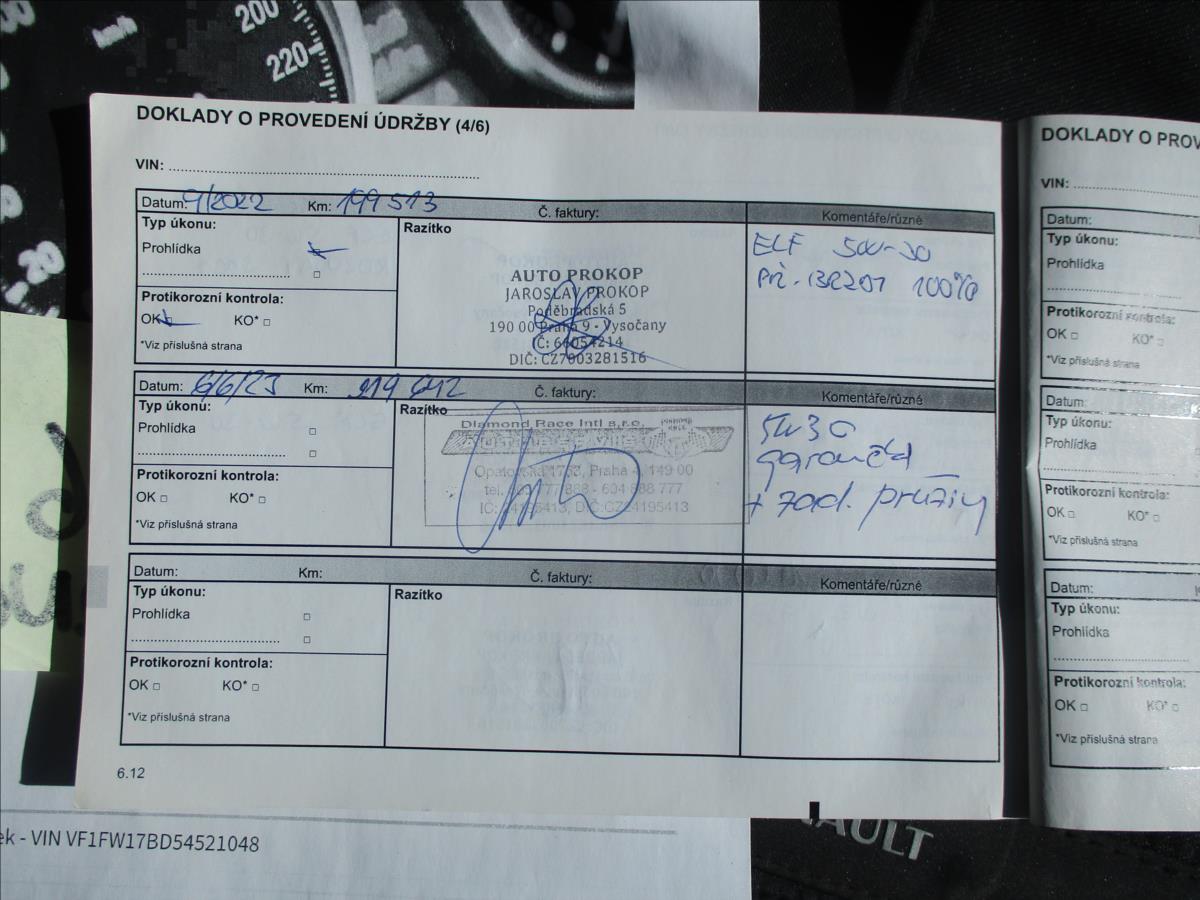 200
220
km/h
20
DOKLADY O PROVEDENÍ ÚDRŽBY (4/6)
VIN:
Datum: 9/2022 Km: 199 513 Č. faktury: Komentáře/různé
Typ úkonu:
Prohlídka
Razítko
AUTO PROKOP
JAROSLAV PROKOP
Poděbradská 5
190 00 Praha 9 - Vysočany
IČ: 66054214
DIČ: CZ7003281516
ELF 5W-30
Př. BR201 100%
Protikorozní kontrola:
OK KO*
*Viz příslušná strana
Datum: 6/6/23 Km: 219 642 Č. faktury: Komentáře/různé
Typ úkonu:
Prohlídka
Razítko
Diamond Race Intl s.r.o.
Praha 4, 149 00
IČ: 24195413, DIČ:CZ24195413
5W30
+ zad. pružiny
Protikorozní kontrola:
OK KO*
*Viz příslušná strana
Datum: Km: Č. faktury: Komentáře/různé
Typ úkonu:
Prohlídka
Razítko
Protikorozní kontrola:
OK KO*
*Viz příslušná strana
6.12
DOKLADY O PROV
VIN:
Datum:
Typ úkonu:
Prohlídka
Protikorozní kontrola:
OK KO*
*Viz příslušná strana
Datum:
Typ úkonu:
Prohlídka
Protikorozní kontrola:
OK KO*
*Viz příslušná strana
Datum:
Typ úkonu:
Prohlídka
Protikorozní kontrola:
OK KO*
*Viz příslušná strana
ek - VIN VF1FW17BD54521048
NAULT